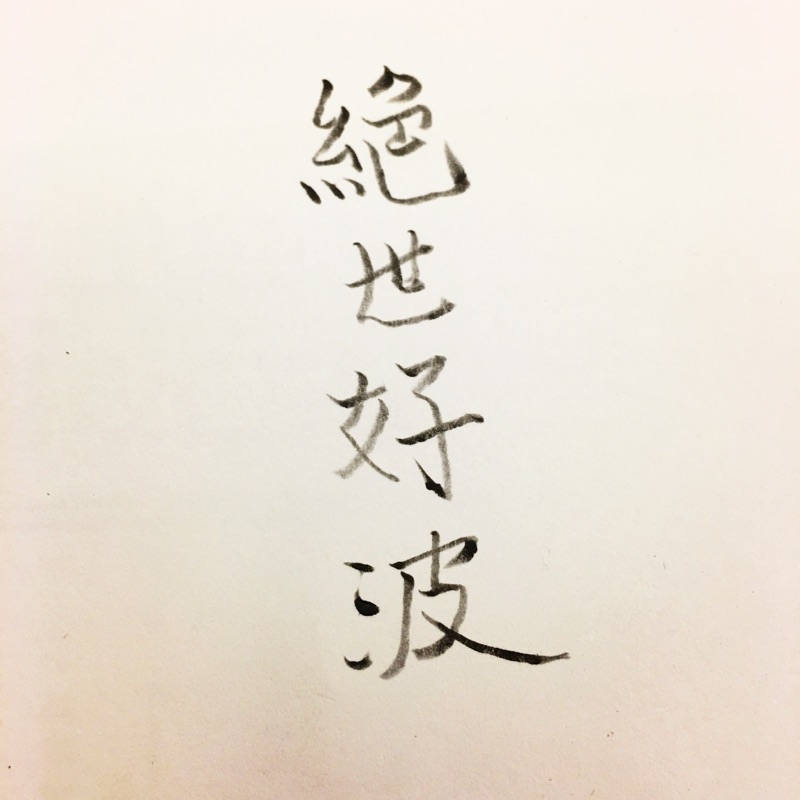 絕世好波